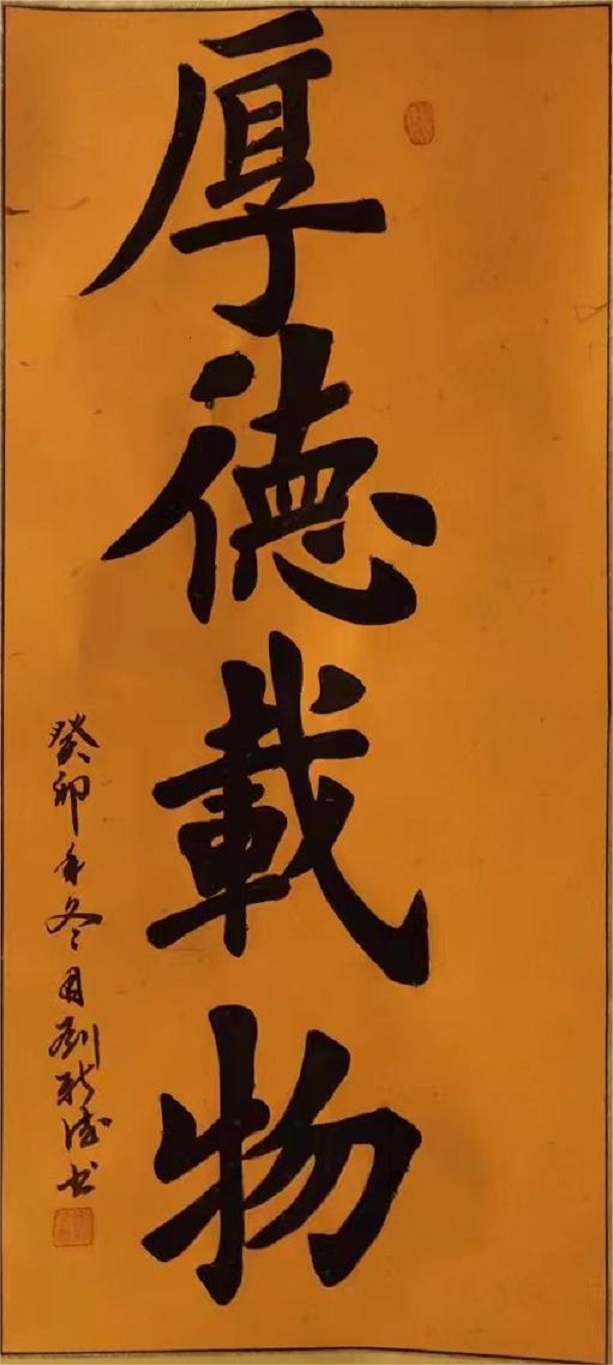 厚德載物
癸卯年冬月劉新德书